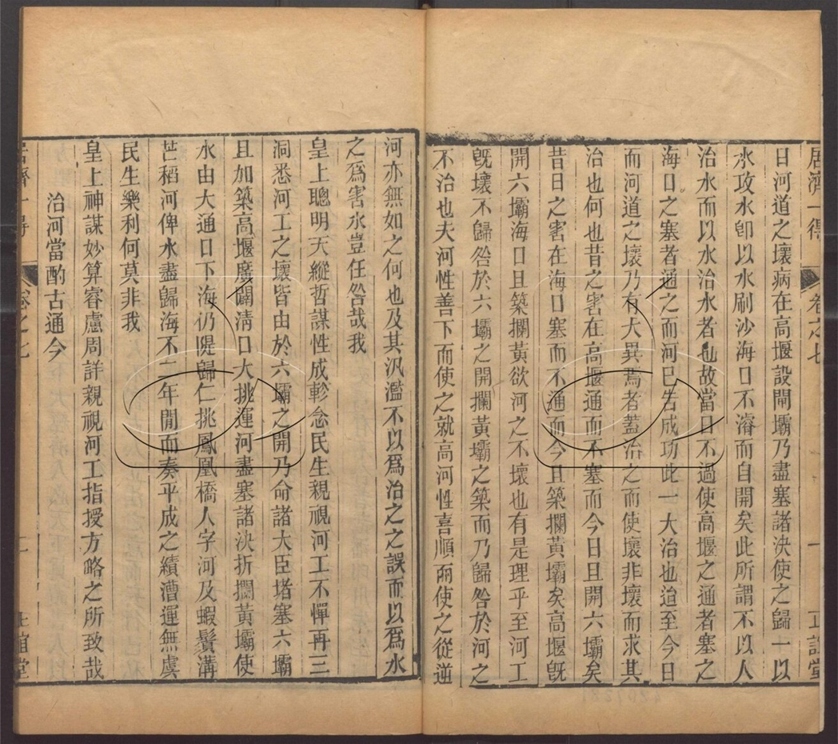 居濟一得
卷之七
一
正誼堂
日河道之壞病在高堰設閘壩乃盡塞諸決使之歸一以
水攻水卽以水刷沙海口不濬而自開矣此所謂不以人
治水而以水治水者也故當日不過使高堰之通者塞之
海口之塞者通之而河已告成功此一大治也迨至今日
而河道之壞乃有大異焉者蓋治之而使壞非壞而求其
治也何也昔之害在高堰通而不塞而今日且開六壩矣
昔日之害在海口塞而不通而今且築攔黃壩矣高堰旣
開六壩海口且築攔黃欲河之不壞也有是理乎至河工
旣壞不歸咎於六壩之開攔黃壩之築而乃歸咎於河之
不治也夫河性善下而使之就高河性喜順而使之從逆
河亦無如之何也及其汎濫不以爲治之之誤而以爲水
之爲害水豈任咎哉我
皇上聰明天縱哲謀性成軫念民生親視河工不憚再三
洞悉河工之壞皆由於六壩之開乃命諸大臣堵塞六壩
且加築高堰廣闢淸口大挑運河盡塞諸決折攔黃壩使
水由大通口下海仍隄歸仁挑鳳凰橋人字河及蝦鬚溝
芒稻河俾水盡歸海不二年閒而奏平成之績漕運無虞
民生樂利何莫非我
皇上神謀妙算睿慮周詳親視河工指授方略之所致哉
治河當酌古通今
居濟一得
卷之七
二
正誼堂